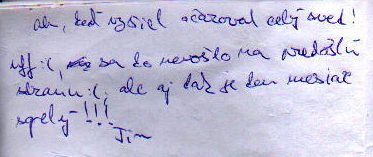 ak, keď vyšiel očaroval celý svet!
uff :(, sa to nevošlo na predošlú
stranu :(, ale aj tak je ten mesiac
úplný!!!
Jim